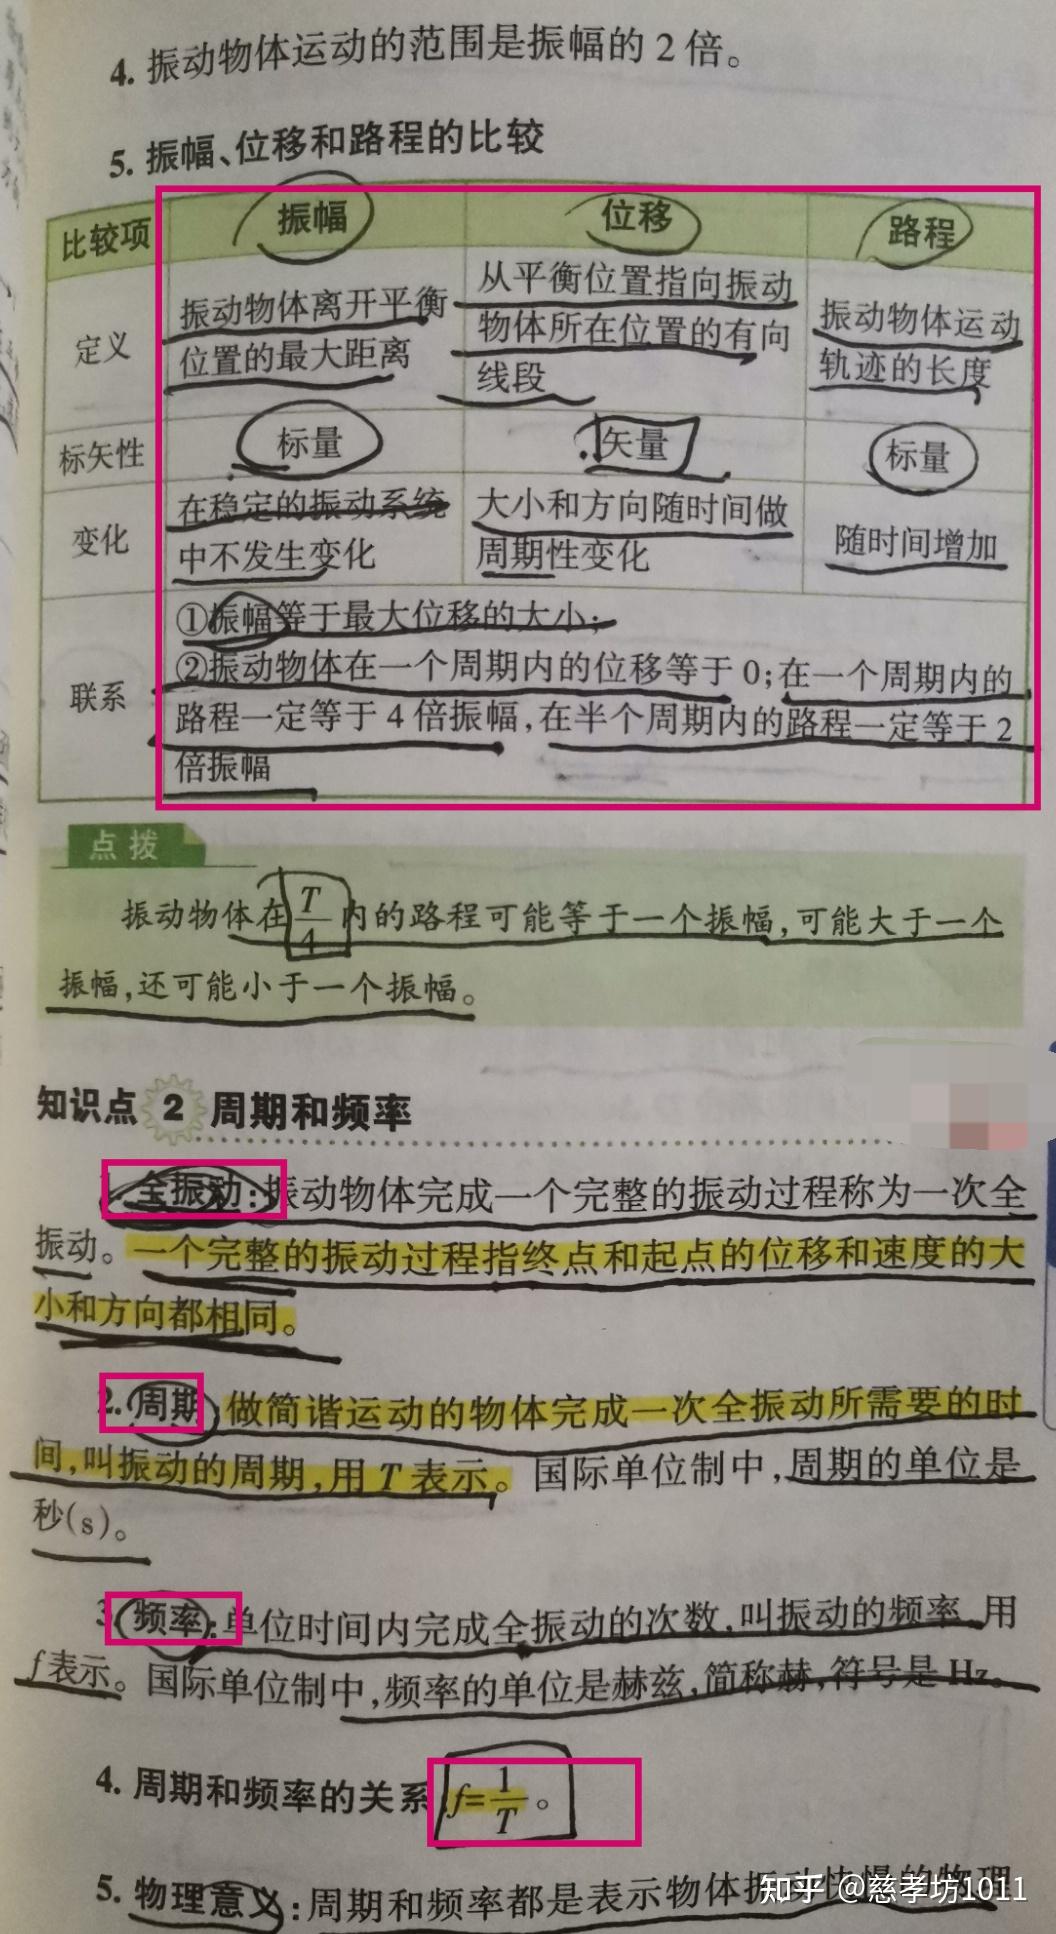 4. 振动物体运动的范围是振幅的 2 倍。
5. 振幅、位移和路程的比较
比较项 振幅 位移 路程
定义 振动物体离开平衡位置的最大距离 从平衡位置指向振动物体所在位置的有向线段 振动物体运动轨迹的长度
标矢性 标量 矢量 标量
变化 在稳定的振动系统中不发生变化 大小和方向随时间做周期性变化 随时间增加
联系 ①振幅等于最大位移的大小;
②振动物体在一个周期内的位移等于 0;在一个周期内的
路程一定等于 4 倍振幅,在半个周期内的路程一定等于 2
倍振幅
点拨
振动物体在 T/4 内的路程可能等于一个振幅,可能大于一个
振幅,还可能小于一个振幅。
知识点 2 周期和频率
全振动:振动物体完成一个完整的振动过程称为一次全
振动。一个完整的振动过程指终点和起点的位移和速度的大
小和方向都相同。
2. 周期 做简谐运动的物体完成一次全振动所需要的时
间,叫振动的周期,用 T 表示。国际单位制中,周期的单位是
秒(s)。
3 频率:单位时间内完成全振动的次数,叫振动的频率 用
f 表示。国际单位制中,频率的单位是赫兹,简称赫,符号是 Hz。
4. 周期和频率的关系 f=1/T。
5. 物理意义:周期和频率都是表示物体振动快慢的物理
知乎 @慈孝坊1011